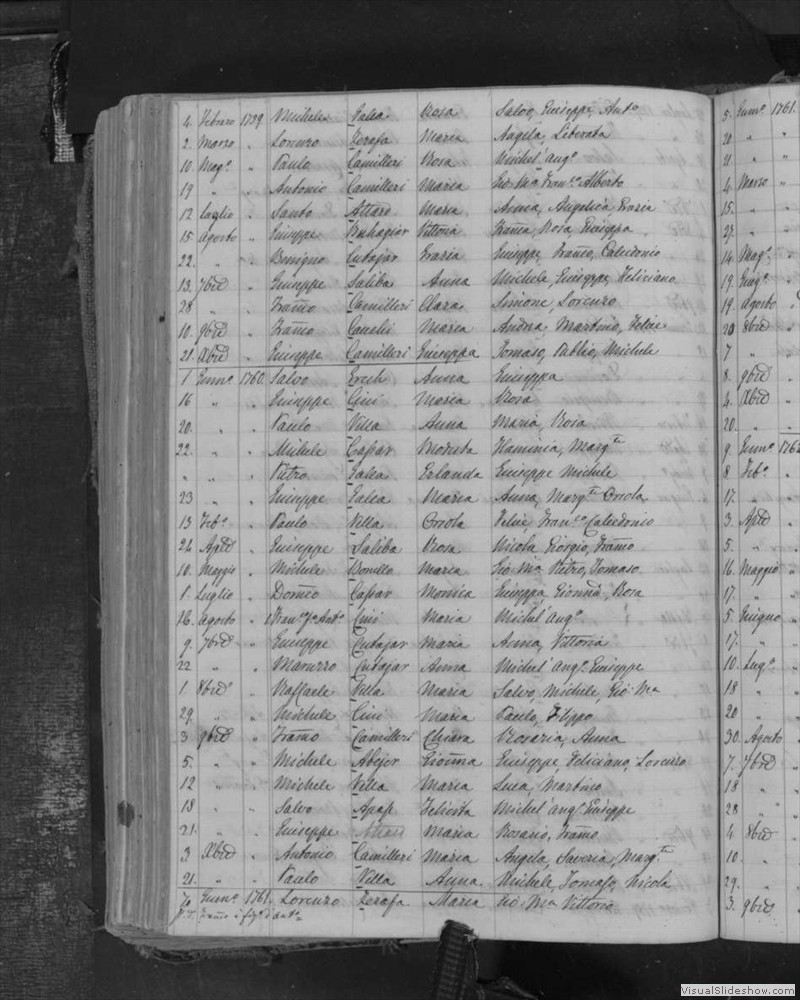 4. Febraro 1759. Michele Galea Rosa Salvo, Giuseppe, Anto
2. Marzo " Lorenzo Zerafa Maria Angela, Liberata
10. Magº " Paulo Camilleri Rosa Michel'angº
19 " " Antonio Camilleri Maria Gio Mª Franco Alberto
12 Luglio " Santo Attard Maria Anna, Angelica Grazia
15. Agosto " Giuseppe Buhagiar Vittoria Rosa, Giuseppa
22. " " Benigno Cutajar Grazia Giuseppe, Calcedonio
13. 7bre " Giuseppe Saliba Anna Michele, Giuseppe, Feliciano
28 " " Camilleri Clara Simone, Lorenzo
10. 9bre " Maria Andrea, Martino, Felice
21. Xbre " Giuseppe Camilleri Giuseppa Tomaso, Publio, Michele
1 Gennº 1760. Salvo Grech Anna Giuseppa
16 " " Giuseppe Cini Maria Rosa
20. " " Paulo Villa Anna Maria, Rosa
22. " " Michele Caspar Modesta Flaminia, Margta
" " " Pietro Galea Erlanda Giuseppe Michele
23 " " Giuseppe Galea Maria Anna, Margta Orsola
13 Febº " Paulo Villa Orsola Felice, Calcedonio
26 Aple " Giuseppe Saliba Rosa Nicola Giorgio,
10. Maggio " Michele Bonello Maria Gio Mª Pietro, Tomaso
1. Luglio " Caspar Monica Giuseppa Rosa
16. Agosto " Cini Maria Michel'angº
9. 7bre " Giuseppe Cutajar Maria Anna, Vittoria
22 " " Maruzzo Cutajar Anna Michel'angº Giuseppe
1. 8bre " Raffaele Villa Maria Salvo, Michele, Gio Mª
29. " " Michele Cini Maria Paulo, Filippo
3 9bre " Camilleri Chiara Rosaria, Anna
5. " " Michele Abejer Giuseppe Feliciano, Lorenzo
12 " " Michele Villa Maria Luca, Martino
18 " " Salvo Apap Felicita Michel'angº Giuseppe
21. " " Giuseppe Maria Rosario,
3 Xbre " Antonio Camilleri Maria Angela, Saveria, Margta
21. " " Paulo Villa Anna Michele, Tomaso, Nicola
Gennº 1761. Lorenzo Zerafa Maria Gio Mª Vittorio
5. Gennº 1761.
20 " "
21. " "
4. Marzo "
15. " "
27. " "
14. Magº
19. Giugº
19. Agosto
20 8bre
7 "
8. 9bre
4. Xbre
20. "
9. Gennº 1762
8 Febº
17. "
3. Aple
5. "
16. Maggio
17. "
5. Giugno
17. "
10. Lugº
18 "
20 "
30. Agosto
7. 7bre
18 "
28 "
4. 8bre
10. "
29. "
3. 9bre
VisualSlideshow.com